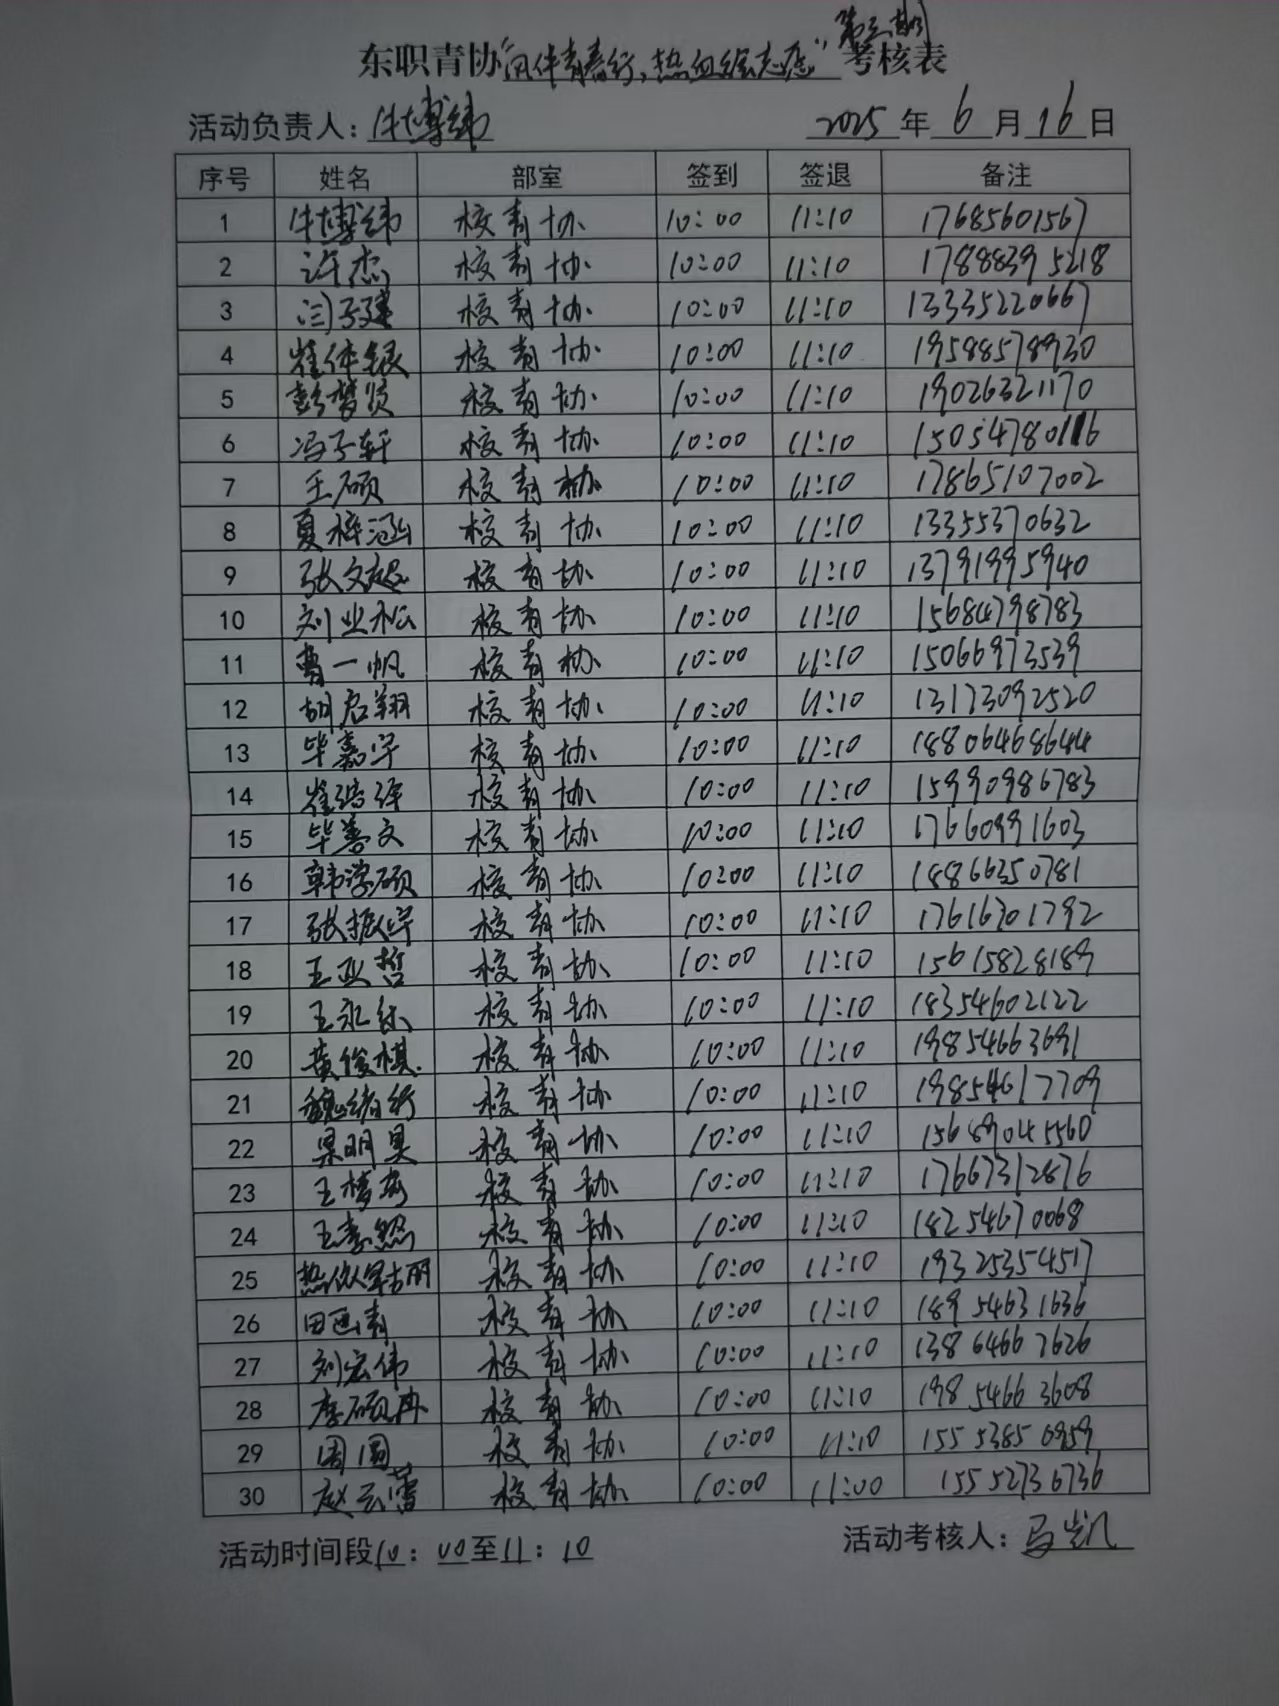 第三期
东职青协“问伴青春行,热血绘志愿”考核表
活动负责人:牛博纬 2025年6月16日
序号 姓名 部室 签到 签退 备注
1 牛博纬 校青协 10:00 11:10 17685601567
2 许杰 校青协 10:00 11:10 17888395218
3 闫子建 校青协 10:00 11:10 13335220667
4 崔体银 校青协 10:00 11:10 19588578930
5 彭梦贤 校青协 10:00 11:10 19026321170
6 冯子轩 校青协 10:00 11:10 15054780116
7 王硕 校青协 10:00 11:10 17865107002
8 夏梓涵 校青协 10:00 11:10 13355370632
9 张文超 校青协 10:00 11:10 13791995940
10 刘业松 校青协 10:00 11:10 15684798783
11 曹一帆 校青协 10:00 11:10 15066973539
12 胡启翔 校青协 10:00 11:10 13173092520
13 毕嘉宇 校青协 10:00 11:10 18806468644
14 崔培泽 校青协 10:00 11:10 15990986783
15 毕善文 校青协 10:00 11:10 17660991603
16 韩学硕 校青协 10:00 11:10 18866350781
17 张振华 校青协 10:00 11:10 17616701792
18 王亚哲 校青协 10:00 11:10 15615828189
19 王永乐 校青协 10:00 11:10 18354602122
20 黄俊棋 校青协 10:00 11:10 19854663691
21 魏绪行 校青协 10:00 11:10 19854617709
22 果明昊 校青协 10:00 11:10 15689045560
23 王梦 校青协 10:00 11:10 17667312876
24 王孝熙 校青协 10:00 11:10 18254670068
25 校青协 10:00 11:10 19325354517
26 田画青 校青协 10:00 11:10 18954631636
27 刘宏伟 校青协 10:00 11:10 13864667626
28 李硕冉 校青协 10:00 11:10 19854663608
29 周圆 校青协 10:00 11:10 15553850959
30 赵云蕾 校青协 10:00 11:00 15552736736
活动时间段10:00至11:10 活动考核人:马凯